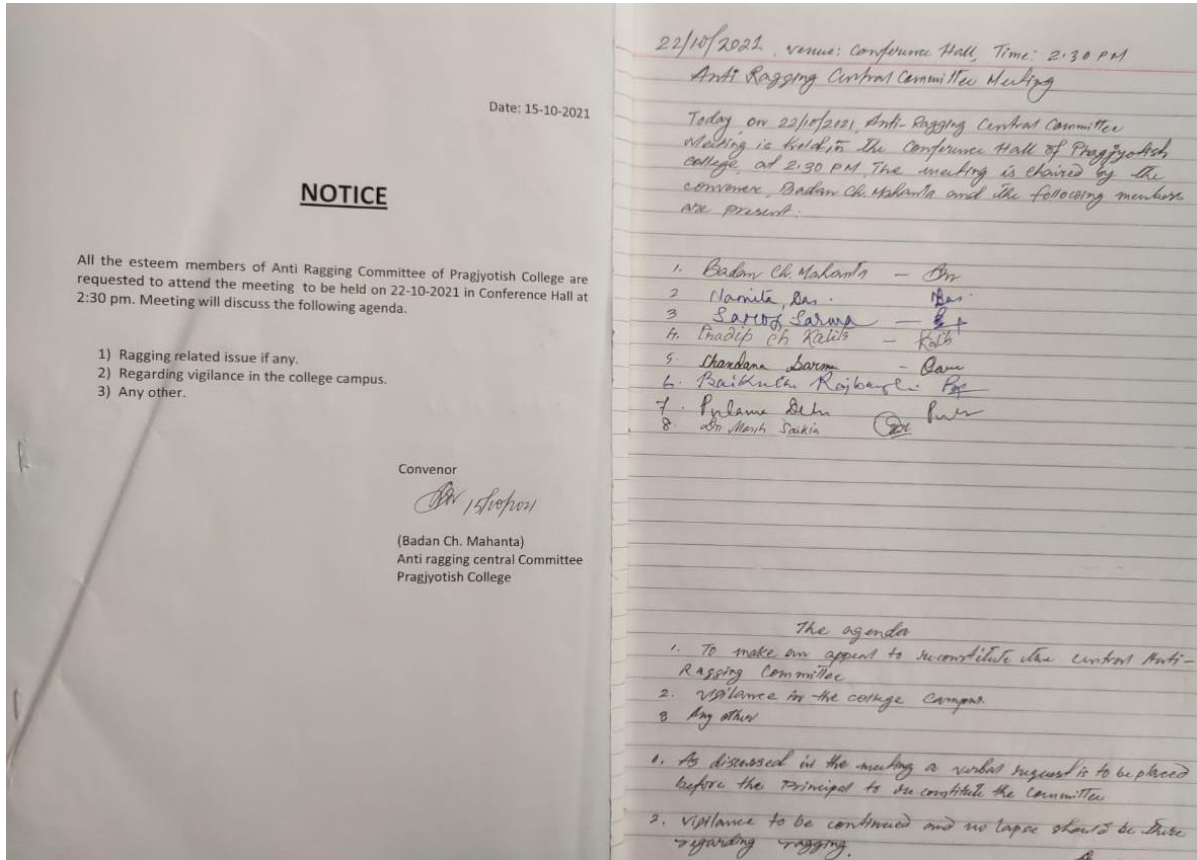 Date: 15-10-2021
NOTICE
All the esteem members of Anti Ragging Committee of Pragjyotish College are
requested to attend the meeting to be held on 22-10-2021 in Conference Hall at
2:30 pm. Meeting will discuss the following agenda.
1) Ragging related issue if any.
2) Regarding vigilance in the college campus.
3) Any other.
Convenor
15/10/2021
(Badan Ch. Mahanta)
Anti ragging central Committee
Pragjyotish College
22/10/2021, venue: Conference Hall, Time: 2.30 PM
Anti Ragging Central Committee Meeting
Today, on 22/10/2021, Anti-Ragging Central Committee
Meeting is held in the Conference Hall of Pragjyotish
College, at 2.30 PM. The meeting is chaired by the
convener, Badan Ch. Mahanta and the following members
are present.
1. Badan Ch. Mahanta -
2 Namita Das. Das.
3 Saroj Sarma -
4. Pradip Ch Kalita -
5. Chandana Sarma -
6. Baikuntha Rajbongshi
7.
8. Saikia
The agenda
1. To make an appeal to reconstitute the central Anti-
Ragging Committee
2. Vigilance in the college campus.
3 Any other
1. As discussed in the meeting a verbal request is to be placed
before the Principal to reconstitute the Committee
2. Vigilance to be continued and no lapse should be there
regarding ragging.